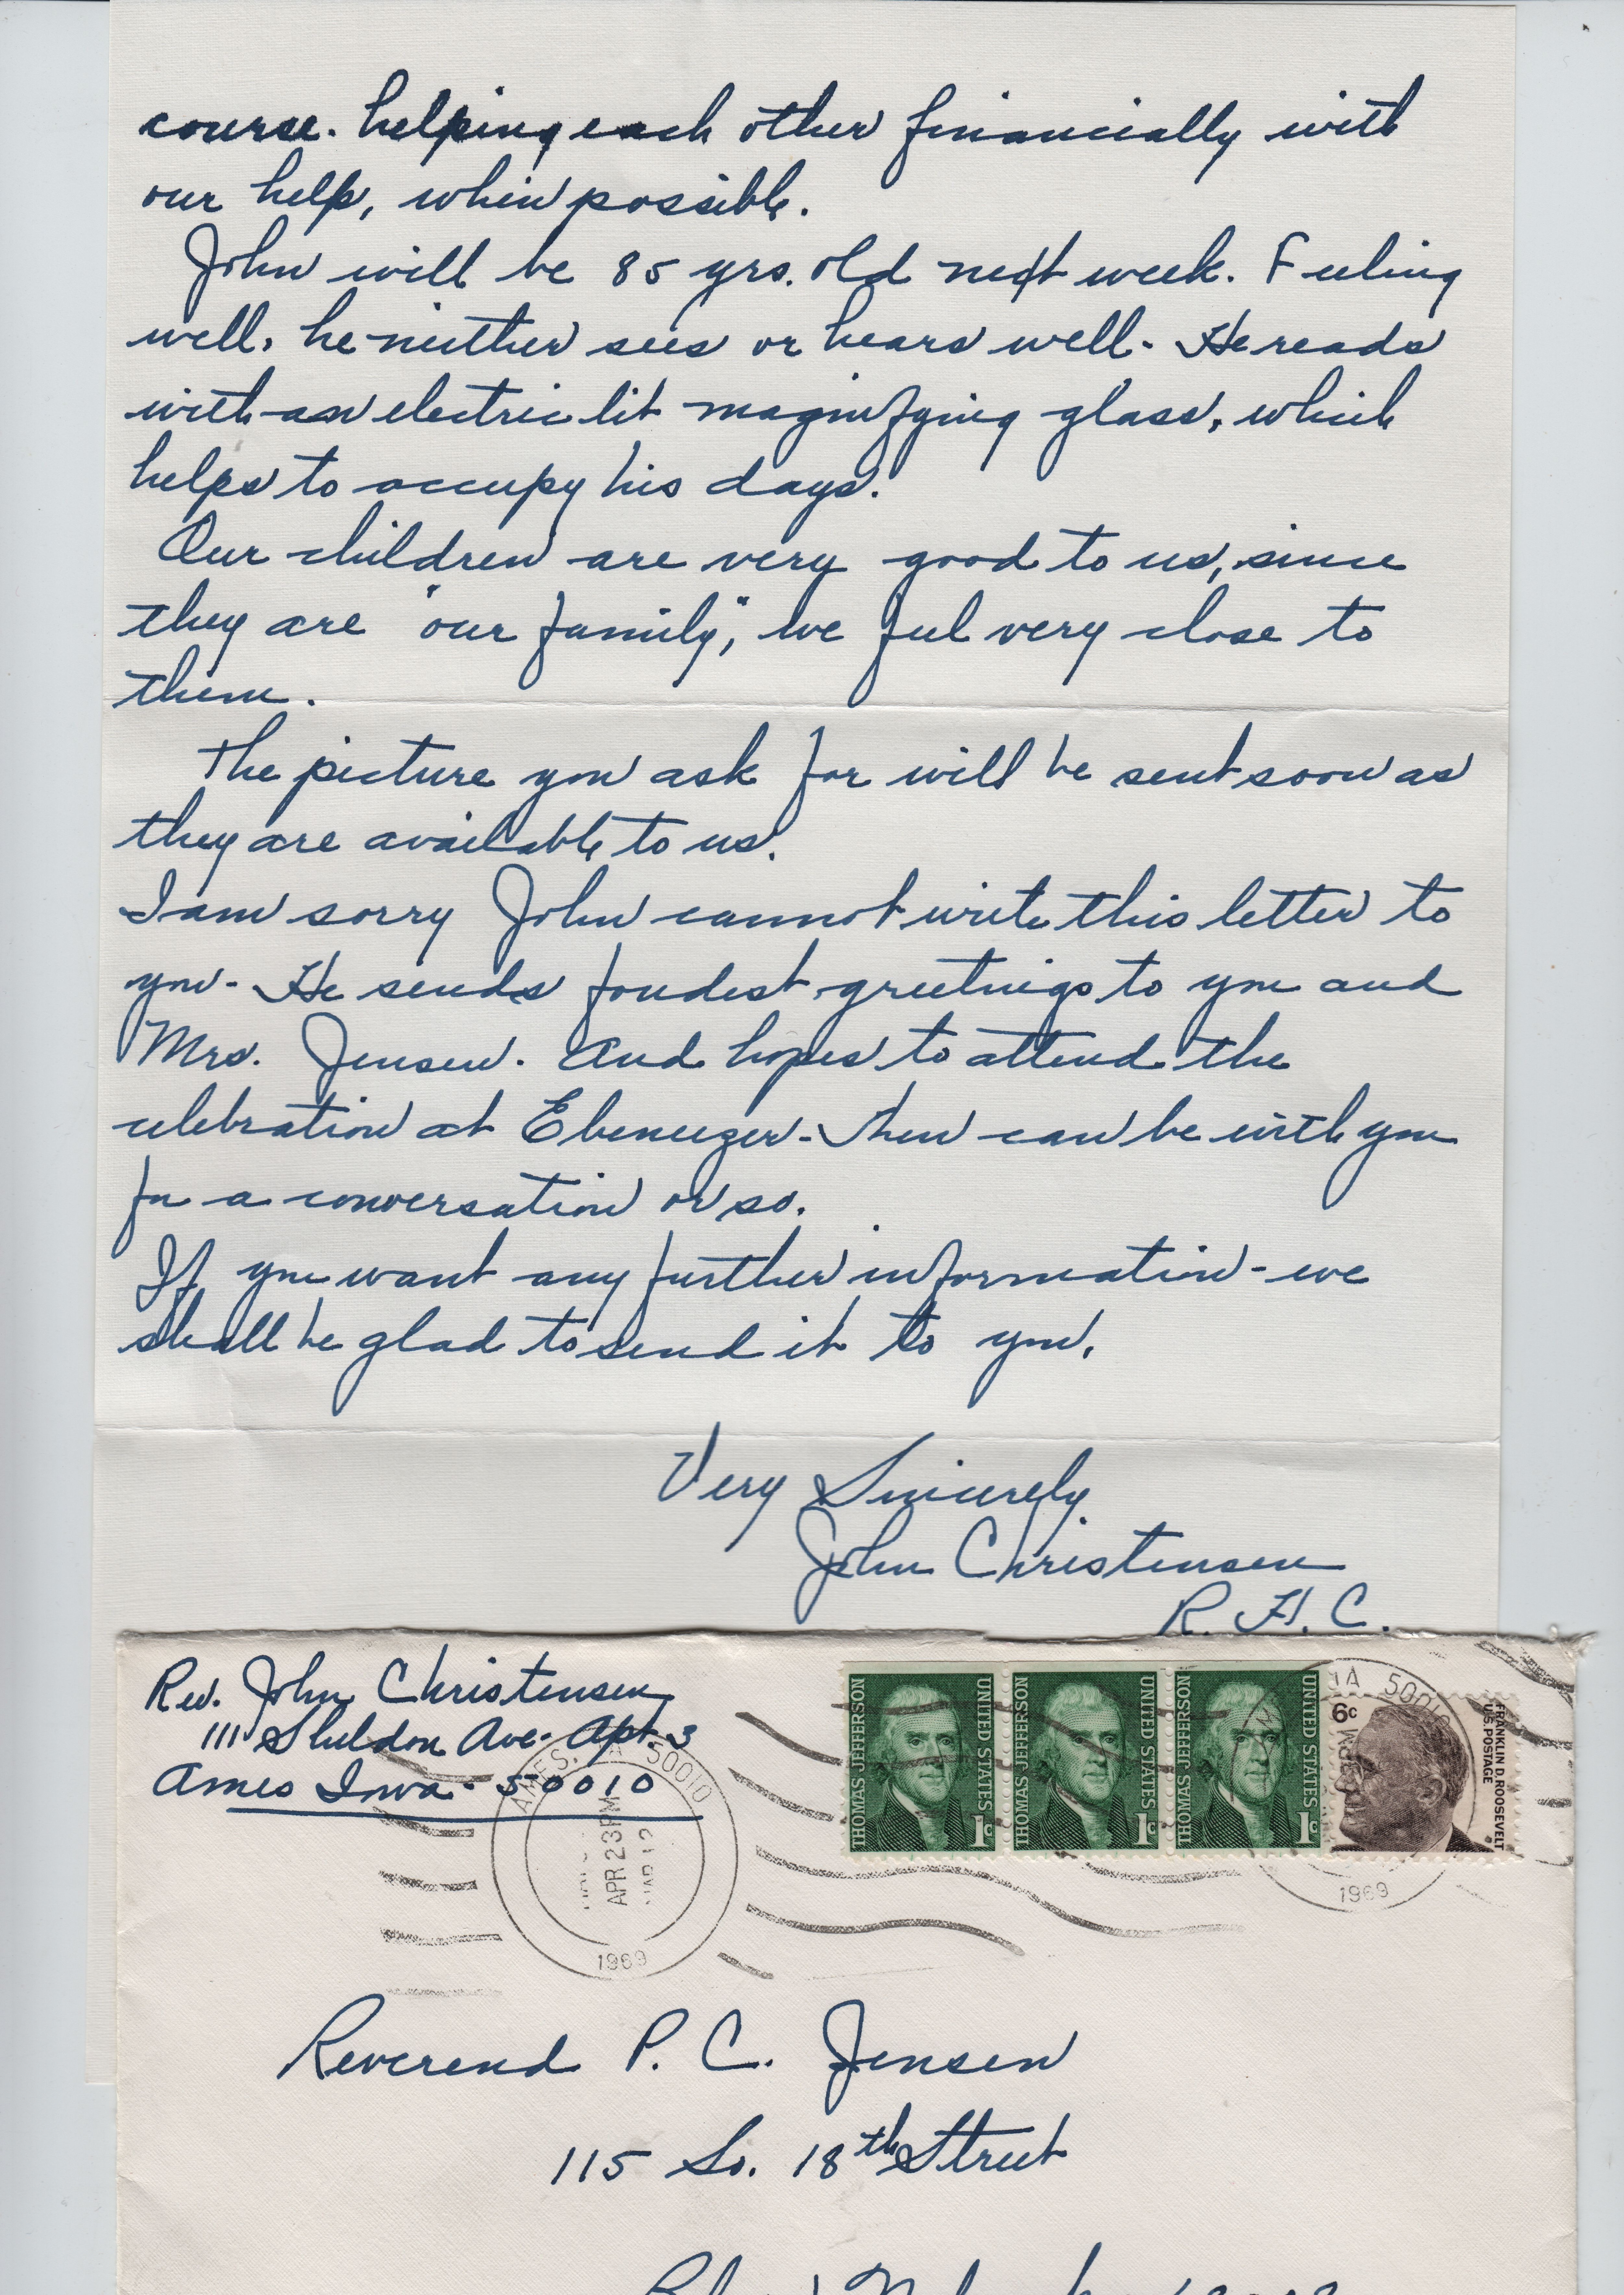 course. helping each other financially with
our help, when possible.
John will be 85 yrs. old next week. Feeling
well, he neither sees or hears well - He reads
with an electric lit magnifying glass, which
helps to occupy his days.
Our children are very good to us, since
they are "our family", we feel very close to
them.
The picture you ask for will be sent soon as
they are available to us.
I am sorry John cannot write this letter to
you - He sends fondest greetings to you and
Mrs. Jensen. And hopes to attend the
celebration at Ebeneezer - then can be with you
for a conversation or so.
If you want any further information - we
shall be glad to send it to you.
Very Sincerely
John Christensen
R. H. C.
Rev. John Christensen
111 Sheldon Ave - Apt. 3
Ames Iowa - 50010
THOMAS JEFFERSON UNITED STATES 1c
THOMAS JEFFERSON UNITED STATES 1c
THOMAS JEFFERSON UNITED STATES 1c
6c FRANKLIN D. ROOSEVELT U.S. POSTAGE
AMES, 50010
APR 23 PM
1969
IA 50010
1969
Reverend P. C. Jensen
115 So. 18th Street